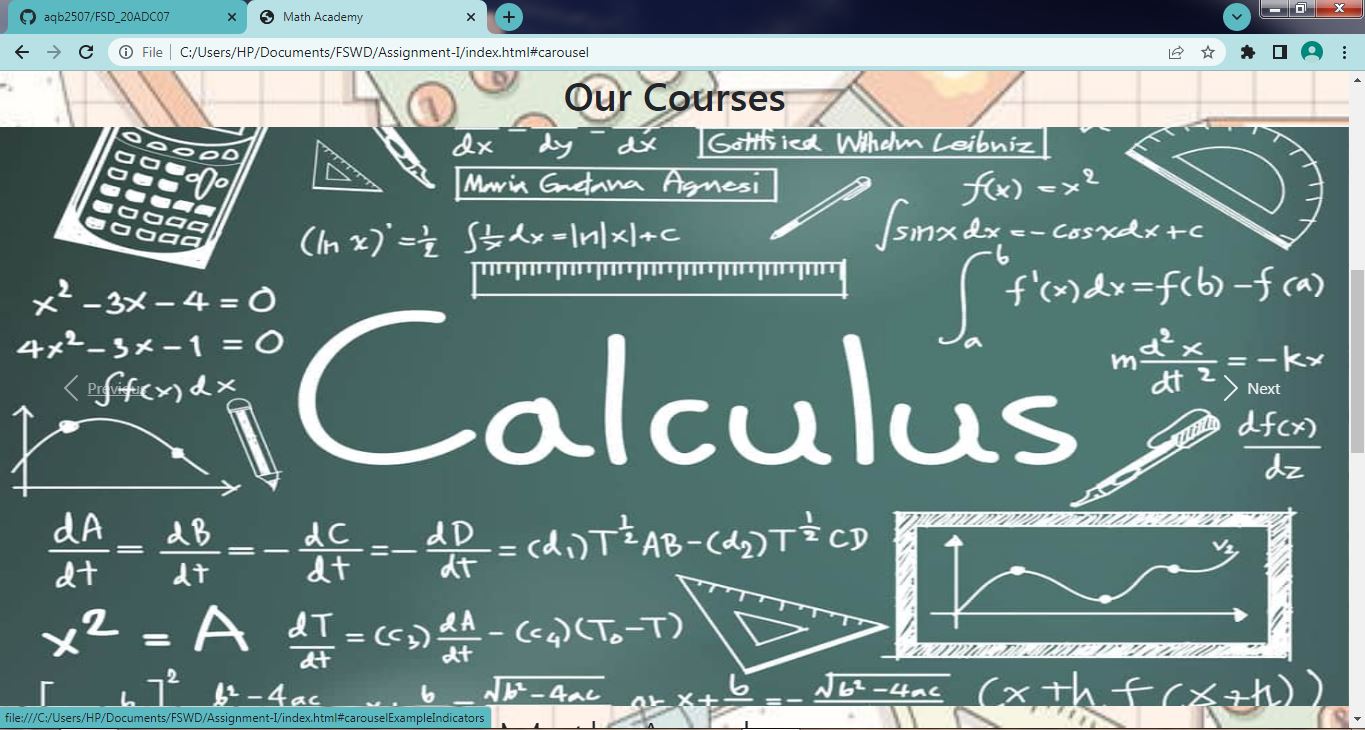 aqb2507/FSD_20ADC07
Math Academy
File
C:/Users/HP/Documents/FSWD/Assignment-I/index.html#carousel
Our Courses
dx dy dx
Gottfried Wilhelm Leibniz
Maria Gaetana Agnesi
f(x) = x²
(ln x)' = ½
∫ 1/x dx = ln|x| + c
∫ sinx dx = - cosxdx + c
∫ₐᵇ f'(x) dx = f(b) - f(a)
x² - 3x - 4 = 0
4x² - 3x - 1 = 0
Calculus
m d²x/dt² = - kx
Previous
∫ f(x) dx
Next
df(x)/dz
dA/dt = dB/dt = - dC/dt = - dD/dt = (d₁) T^½ AB - (d₂) T^½ CD
V₂
x² = A
dT/dt = (c₃) dA/dt - (c₄)(T₀ - T)
b² - 4ac
b
√b² - 4ac
or x + b = - √b² - 4ac
(x + h, f(x + h))
file:///C:/Users/HP/Documents/FSWD/Assignment-I/index.html#carouselExampleIndicators